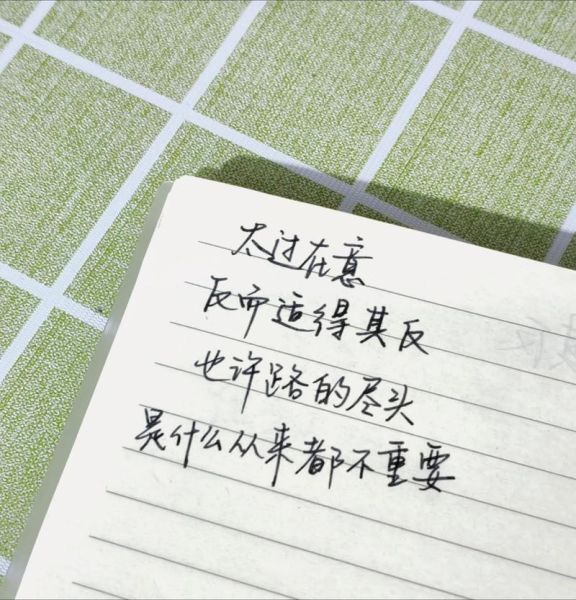 太过在意
反而适得其反
也许路的尽头
是什么从来都不重要